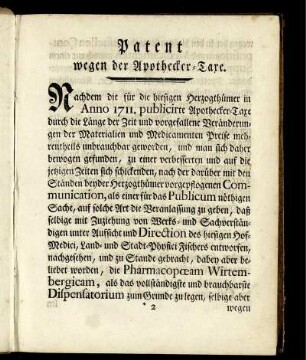 Patent
wegen der Apothecker-Taxe.
Nachdem die für die hiesigen Herzogthümer in
Anno 1711. publicirte Apothecker-Taxe
durch die Länge der Zeit und vorgefallene Veränderun-
gen der Materialien und Medicamenten Preise mehr-
rentheils unbrauchbar geworden, und man sich daher
bewogen gefunden, zu einer verbesserten und auf die
jetzigen Zeiten sich schickenden, nach der darüber mit den
Ständen beyder Herzogthümer vorgepflogenen Com-
munication, als einer für das Publicum nöthigen
Sache, auf solche Art die Veranlassung zu geben, daß
selbige mit Zuziehung von Werck- und Sachverstän-
digen unter Aufsicht und Direction des hiesigen Hof-
Medici, Land- und Stadt-Physici Fischers entworfen,
nachgesehen, und zu Stande gebracht, dabey aber be-
liebet worden, die Pharmacopœam Wirtem-
bergicam, als das vollständigste und brauchbarste
Dispensatorium zum Grunde zu legen, selbige aber
* 2 wegen